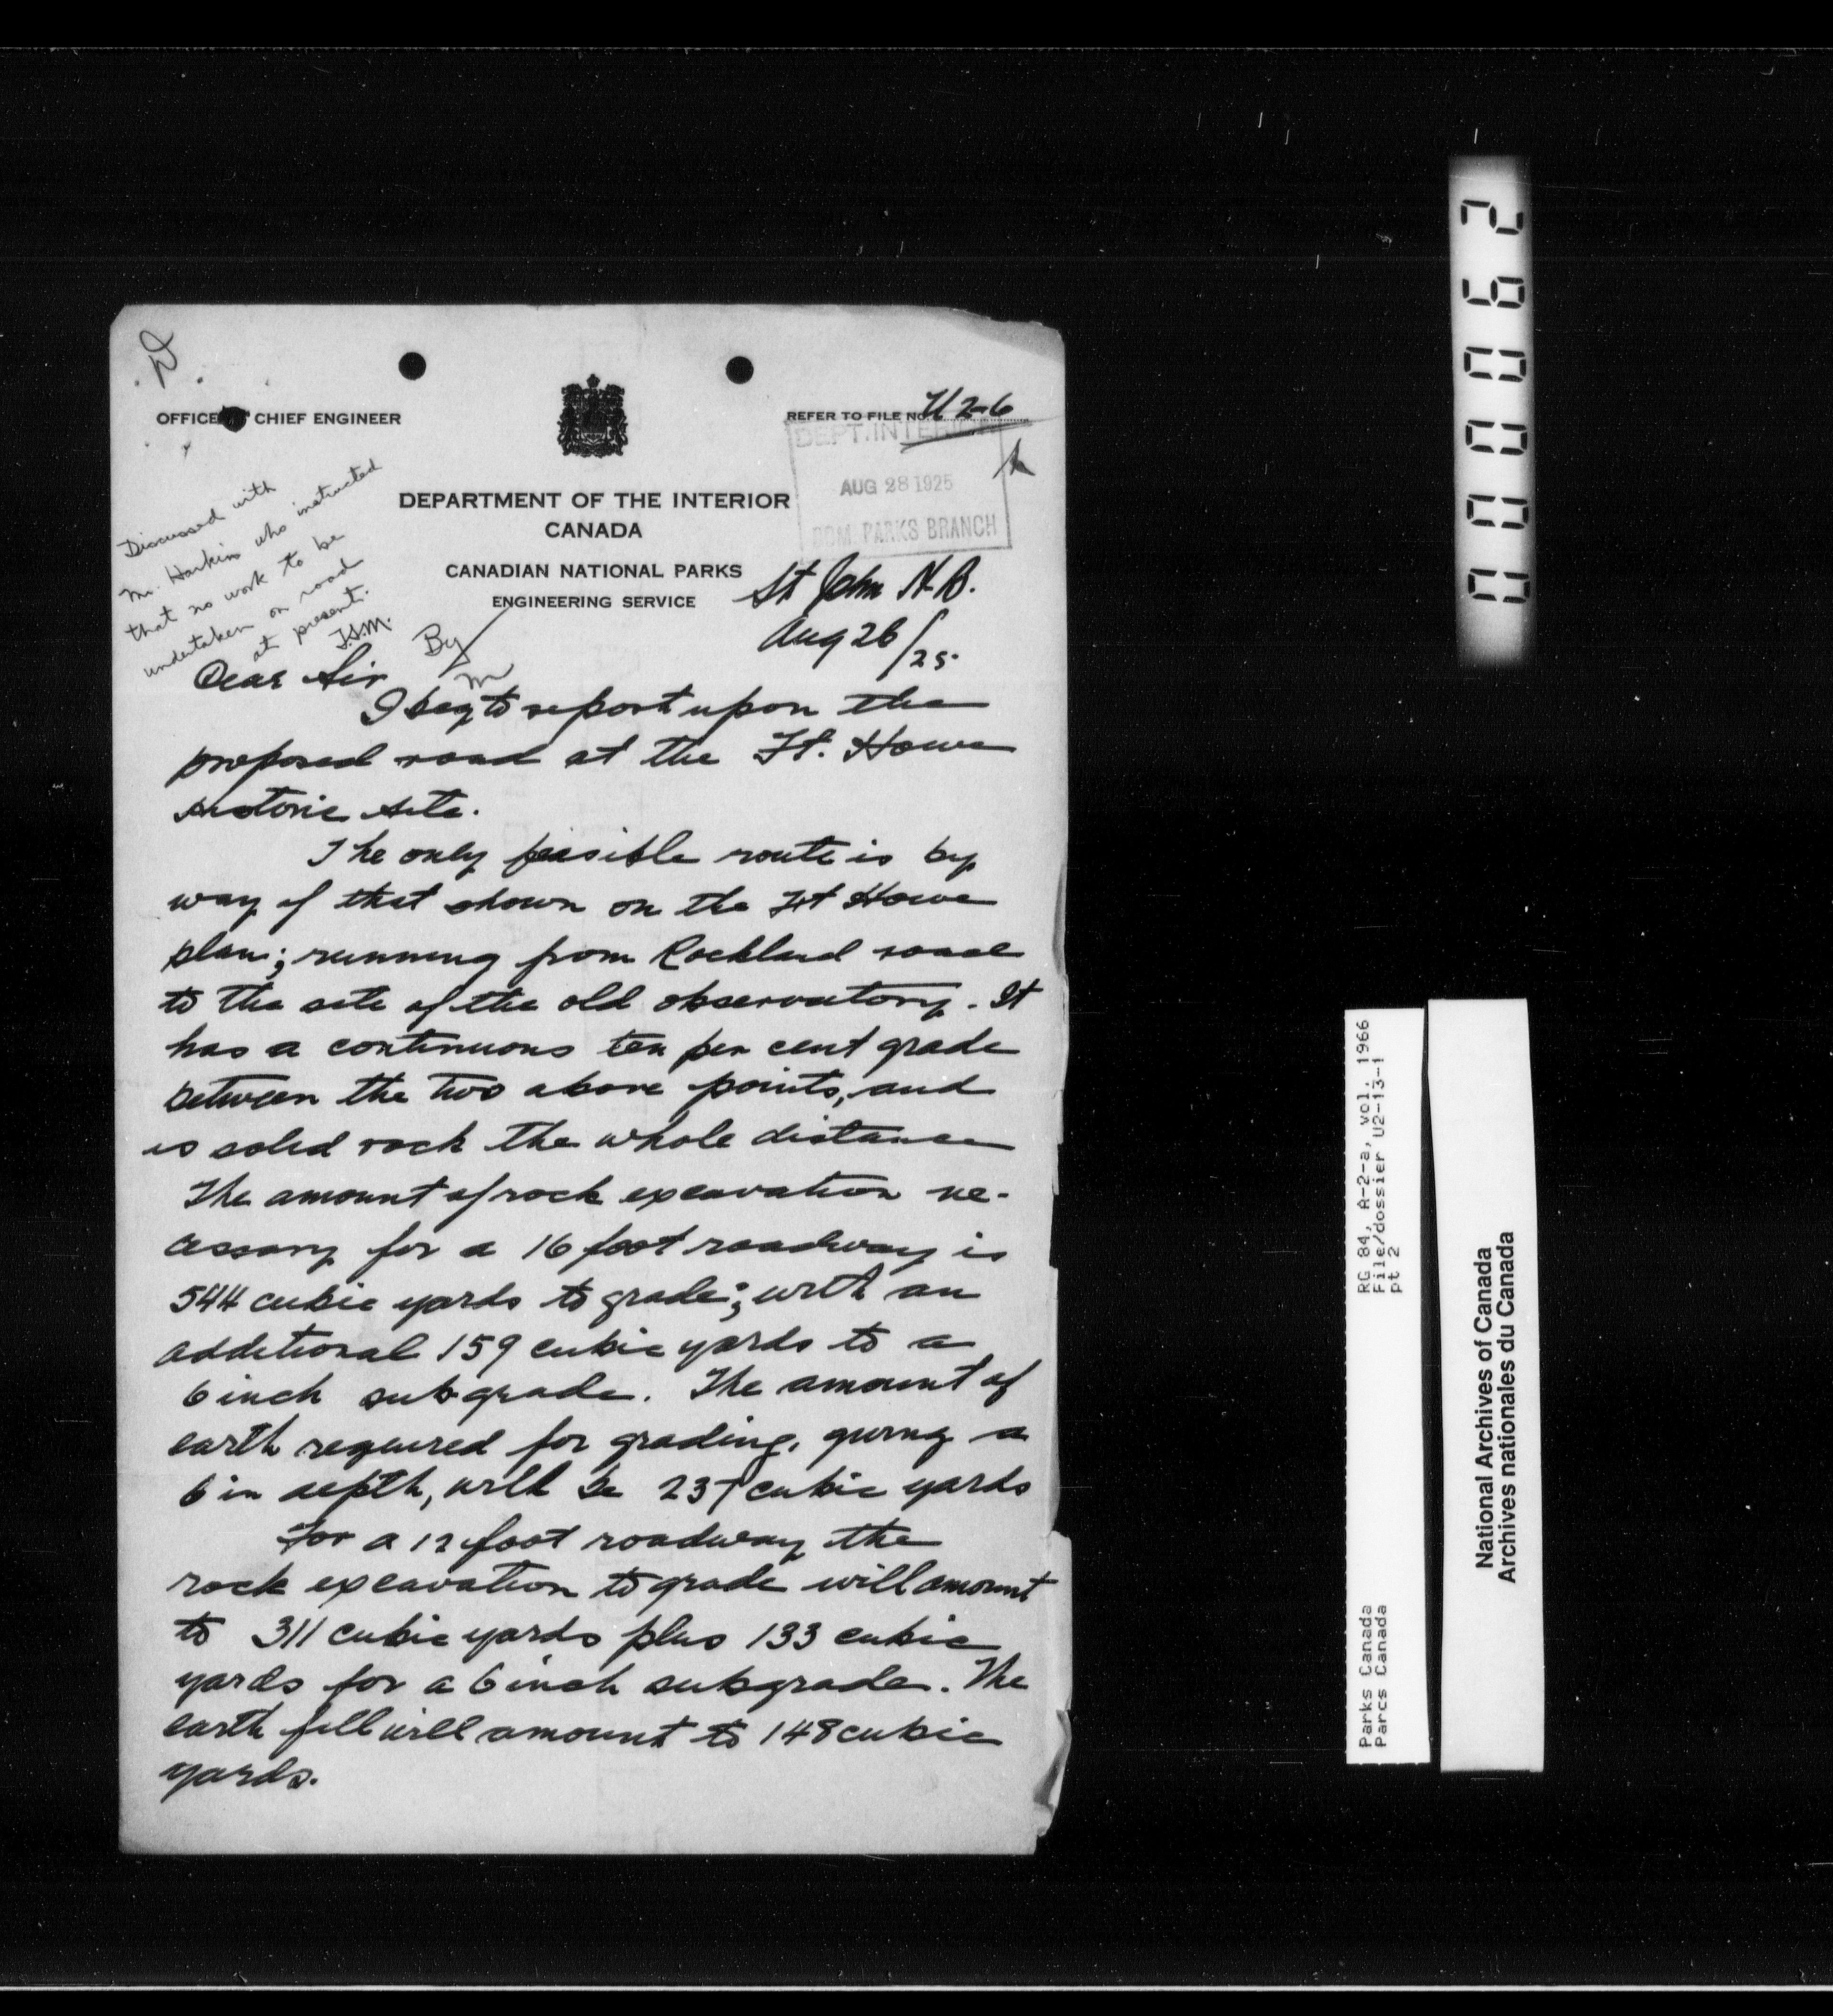 D
OFFICE CHIEF ENGINEER
REFER TO FILE NO. U 2-6
DEPT. INTERIOR
AUG 28 1925
DOM. PARKS BRANCH
DEPARTMENT OF THE INTERIOR
CANADA
CANADIAN NATIONAL PARKS
ENGINEERING SERVICE
Discussed with
Mr. Harkin who instructed
that no work to be
undertaken on road
at present.
By
St John N.B.
Aug 26/25.
Dear Sir
I beg to report upon the
proposed road at the Ft. Howe
historic site.
The only feasible route is by
way of that shown on the Ft Howe
plan; running from Rockland road
to the site of the old observatory. It
has a continuous ten per cent grade
between the two above points, and
is solid rock the whole distance
The amount of rock excavation ne-
cessary for a 16 foot roadway is
544 cubic yards to grade; with an
additional 159 cubic yards to a
6 inch subgrade. The amount of
earth required for grading, giving a
6 in depth, will be 237 cubic yards
For a 12 foot roadway the
rock excavation to grade will amount
to 311 cubic yards plus 133 cubic
yards for a 6 inch subgrade. The
earth fill will amount to 148 cubic
yards.
000062
RG 84, A-2-a, vol. 1966
File/dossier U2-13-1
pt 2
Parks Canada
Parcs Canada
National Archives of Canada
Archives nationales du Canada